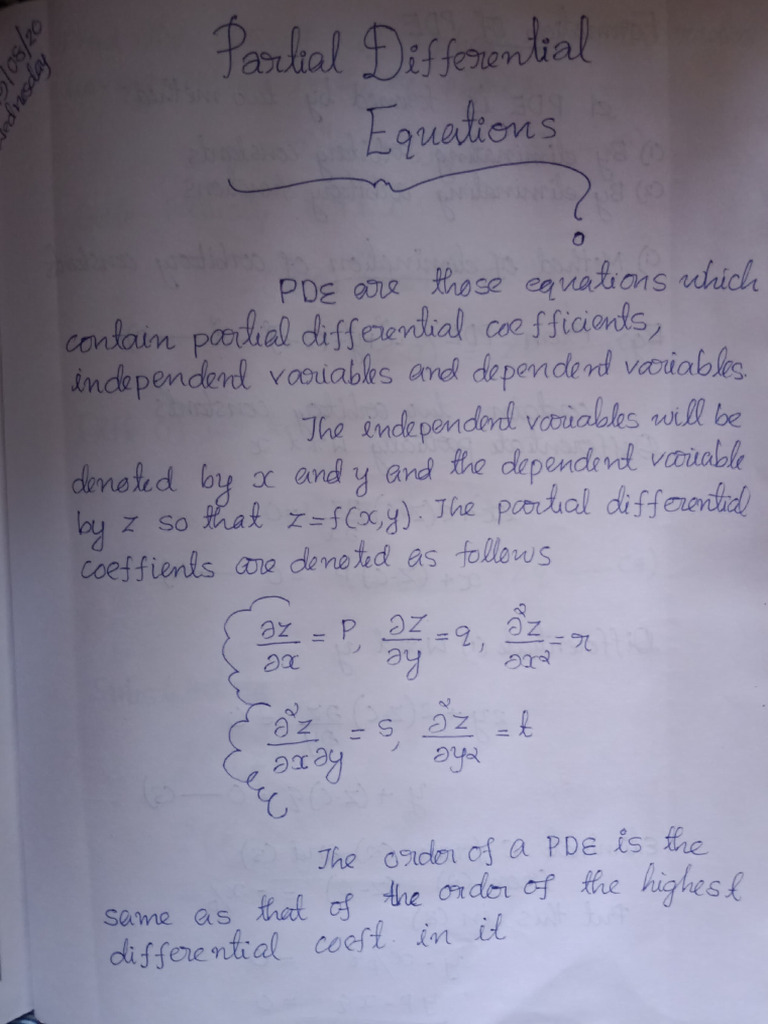 /08/20
Wednesday
Partial Differential
Equations
PDE are those equations which
contain partial differential coefficients,
independent variables and dependent variables.
The independent variables will be
denoted by x and y and the dependent variable
by z so that z=f(x,y). The partial differential
coeffients are denoted as follows
∂z/∂x = p, ∂z/∂y = q, ∂²z/∂x² = r
∂²z/∂x∂y = s, ∂²z/∂y² = t
The order of a PDE is the
same as that of the order of the highest
differential coeft. in it